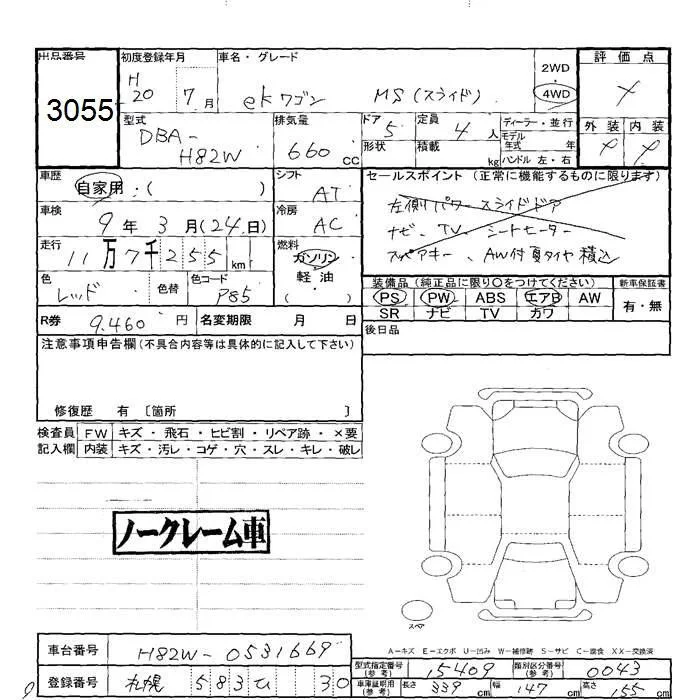 出品番号 初度登録年月 車名・グレード 評価点
3055 H20 7月 ekワゴン MS(スライド) 2WD・4WD
型式 排気量 ドア 定員 ディーラー・並行 外装 内装
DBA-H82W 660cc 5 4人 モデル年式 年
形状 積載 kg ハンドル 左・右
車歴 シフト セールスポイント (正常に機能するものに限ります)
自家用・( ) AT 左側パワースライドドア
車検 冷房 ナビ、TV、シートヒーター
9年3月(24日) AC スペアキー、AW付夏タイヤ積込
走行 燃料
11万7千255km ガソリン・軽油( )
装備品(純正品に限り〇をつけてください) 新車保証書
色 色替 色コード PS PW ABS エアB AW 有・無
レッド P85 SR ナビ TV カワ
R券 9.460円 名変期限 月 日 後日品
注意事項申告欄(不具合内容等は具体的に記入して下さい)
修復歴 有 〔箇所 〕
検査員 FW キズ・飛石・ヒビ割・リペア跡・×要
記入欄 内装 キズ・汚レ・コゲ・穴・スレ・キレ・破レ
ノークレーム車
スペア
A−キズ E−エクボ U−凹み W−補修跡 S−サビ C−腐食 XX−交換済
車台番号 H82W-0531669 型式指定番号(参考) 15409 類別区分番号(参考) 0043
登録番号 札幌 583 ひ 30 車庫証明用(参考) 長さ 339cm 幅 147cm 高さ 155cm